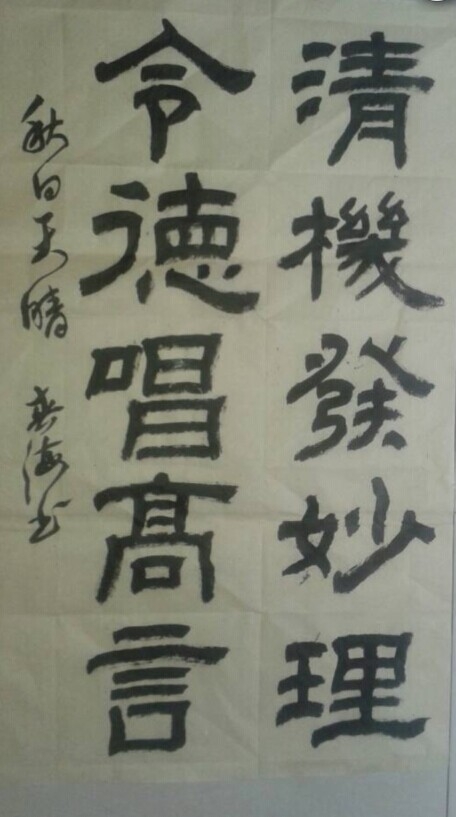 清機發妙理
令德唱髙言
秋日天晴 海书